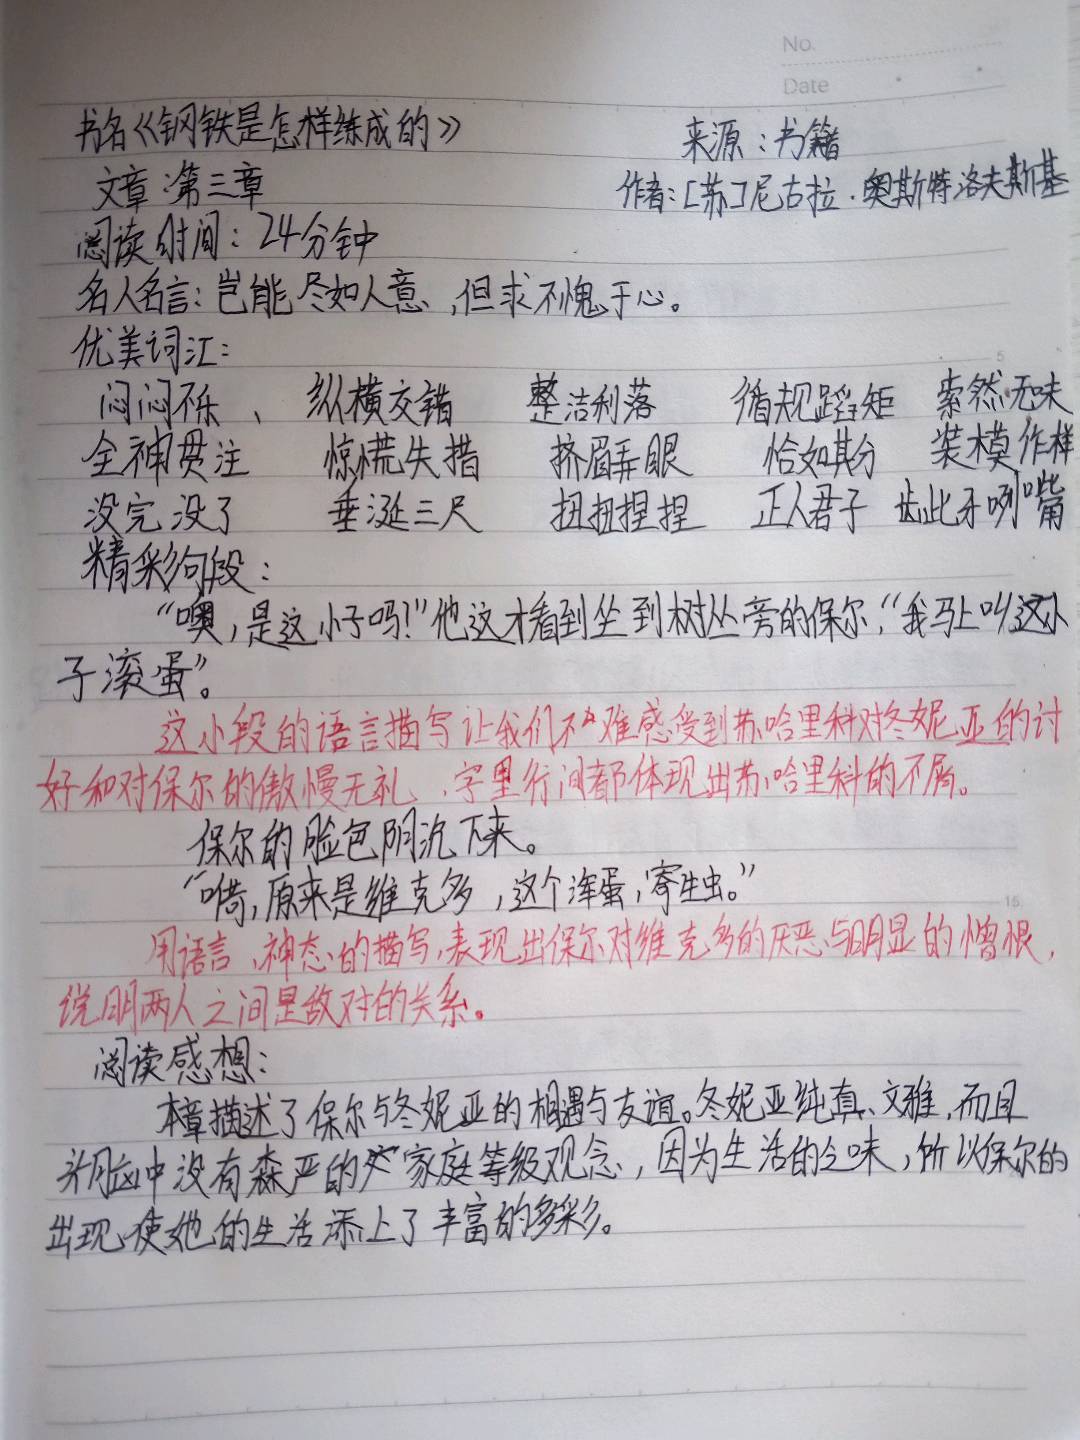 No.
Date
书名《钢铁是怎样练成的》 来源:书籍
文章:第三章 作者:[苏]尼古拉·奥斯特洛夫斯基
阅读时间:24分钟
名人名言:岂能尽如人意,但求不愧于心。
优美词汇:
5
闷闷不乐、 纵横交错 整洁利落 循规蹈矩 索然无味
全神贯注 惊慌失措 挤眉弄眼 恰如其分 装模作样
没完没了 垂涎三尺 扭扭捏捏 正人君子 齿此牙咧嘴
精彩句段:
“噢,是这小子吗!”他这才看到坐到树丛旁的保尔,“我马上叫这小
子滚蛋”。
这小段的语言描写让我们不难感受到苏哈里科对冬妮亚的讨
好和对保尔的傲慢无礼,字里行间都体现出苏哈里科的不屑。
保尔的脸色阴沉下来。
“喏,原来是维克多,这个浑蛋,寄生虫。”
15
用语言、神态的描写,表现出保尔对维克多的厌恶与明显的憎恨,
说明两人之间是敌对的关系。
阅读感想:
本章描述了保尔与冬妮亚的相遇与友谊。冬妮亚纯真、文雅,而且
头脑中没有森严的家庭等级观念,因为生活的乏味,所以保尔的
出现,使她的生活添上了丰富的多彩。